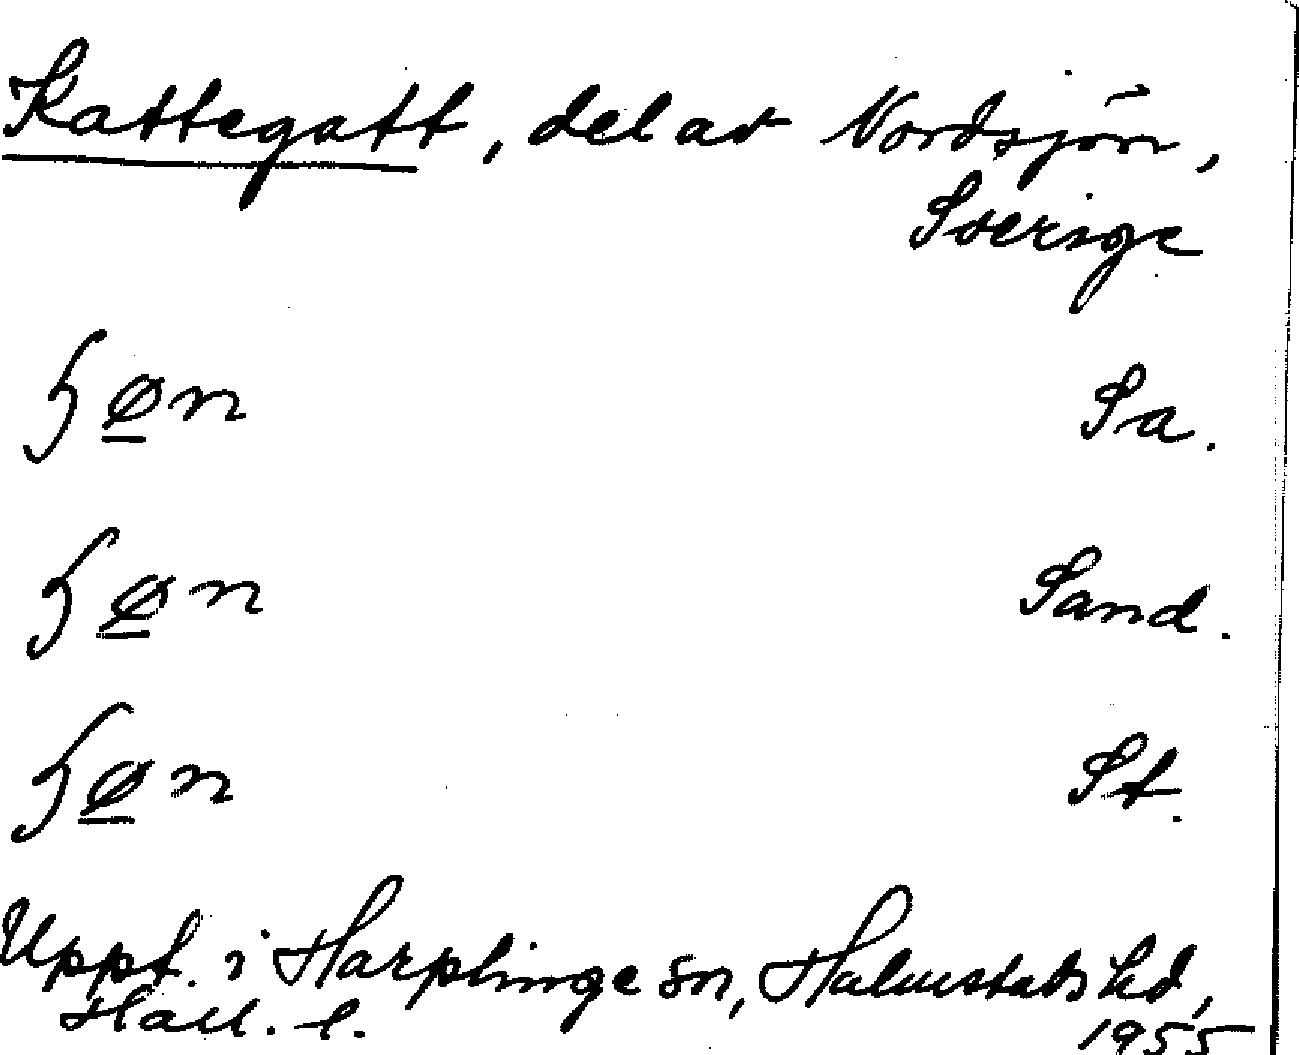 Kattegatt, del av Nordsjön,
Sverige
Sa.
Sand.
St.
Uppt. i Harplinge sn, Halmstads hd,
Hall. l.
1955